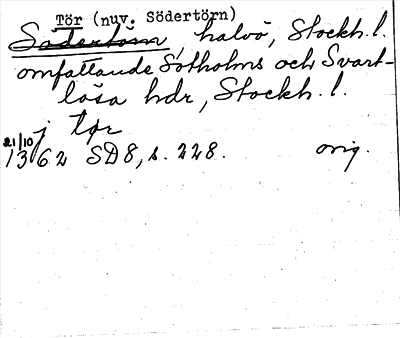 Tör (nuv. Södertörn)
Södertörn, halvö, Stockh. l.
omfattande Sotholms och Svart-
lösa hdr, Stockh. l.
j tør
21/10 1362 SD 8, s. 228. orig.